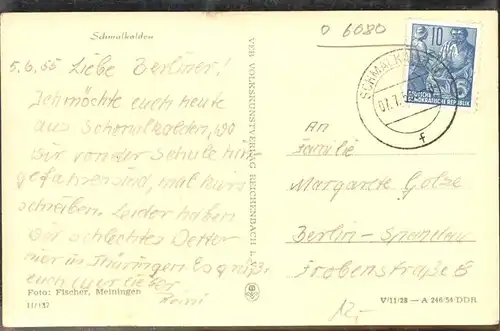 Schmalkalden
O 6080
5.6.55 Liebe Berliner!
Ich möchte euch heute
aus Schmalkalden, wo
wir von der Schule hin
gefahren sind, mal kurz
schreiben. Leider haben
wir schlechtes Wetter
hier in Thüringen. Es grüßt
euch euer lieber
Foto: Fischer, Meiningen
II/137
VEB VOLKSKUNSTVERLAG REICHENBACH
10
DEUTSCHE
DEMOKRATISCHE REPUBLIK
SCHMALKALDEN
07.7.5
f
An
Familie
Margarete Golze
Berlin-Spandau
Frobenstraße 8
12,-
V/11/28 — A 246/54/DDR